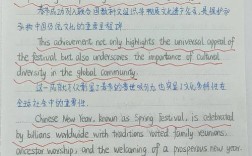 春节成功列入联合国教科文组织非物质文化遗产名录,是保护和
弘扬中国传统文化的重要里程碑
This achievement not only highlights the universal appeal of
the festival but also underscores the importance of cultural
diversity in the global community.
这一成就不仅彰显了春节的普遍吸引力,也突显了文化多样性在
全球社会中的重要性。
Chinese New Year, known as Spring Festival, is celebrated
by billions worldwide with traditions varied family reunions,
ancestor worship, and the welcoming of a prosperous new year.